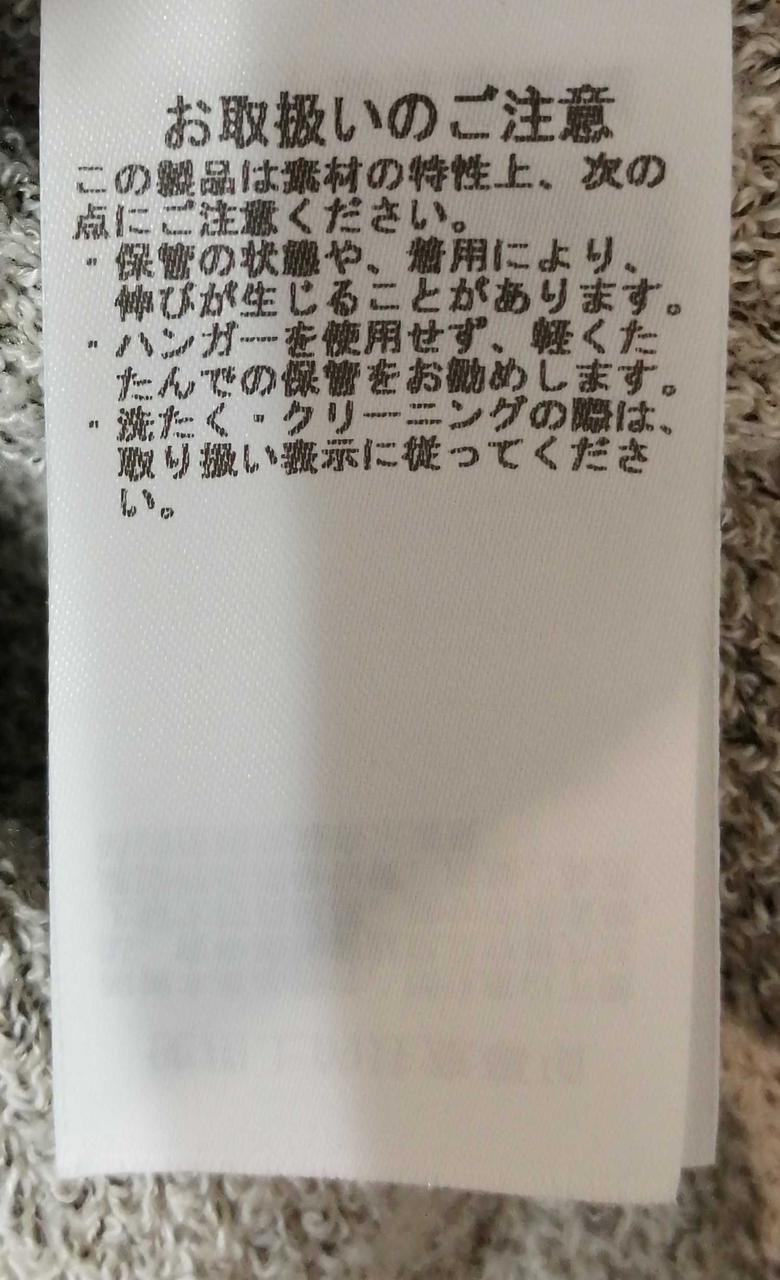 お取扱いのご注意
この製品は素材の特性上、次の
点にご注意ください。
・保管の状態や、着用により、
伸びが生じることがあります。
・ハンガーを使用せず、軽くた
たんでの保管をお勧めします。
・洗たく・クリーニングの際は、
取り扱い表示に従ってくださ
い。